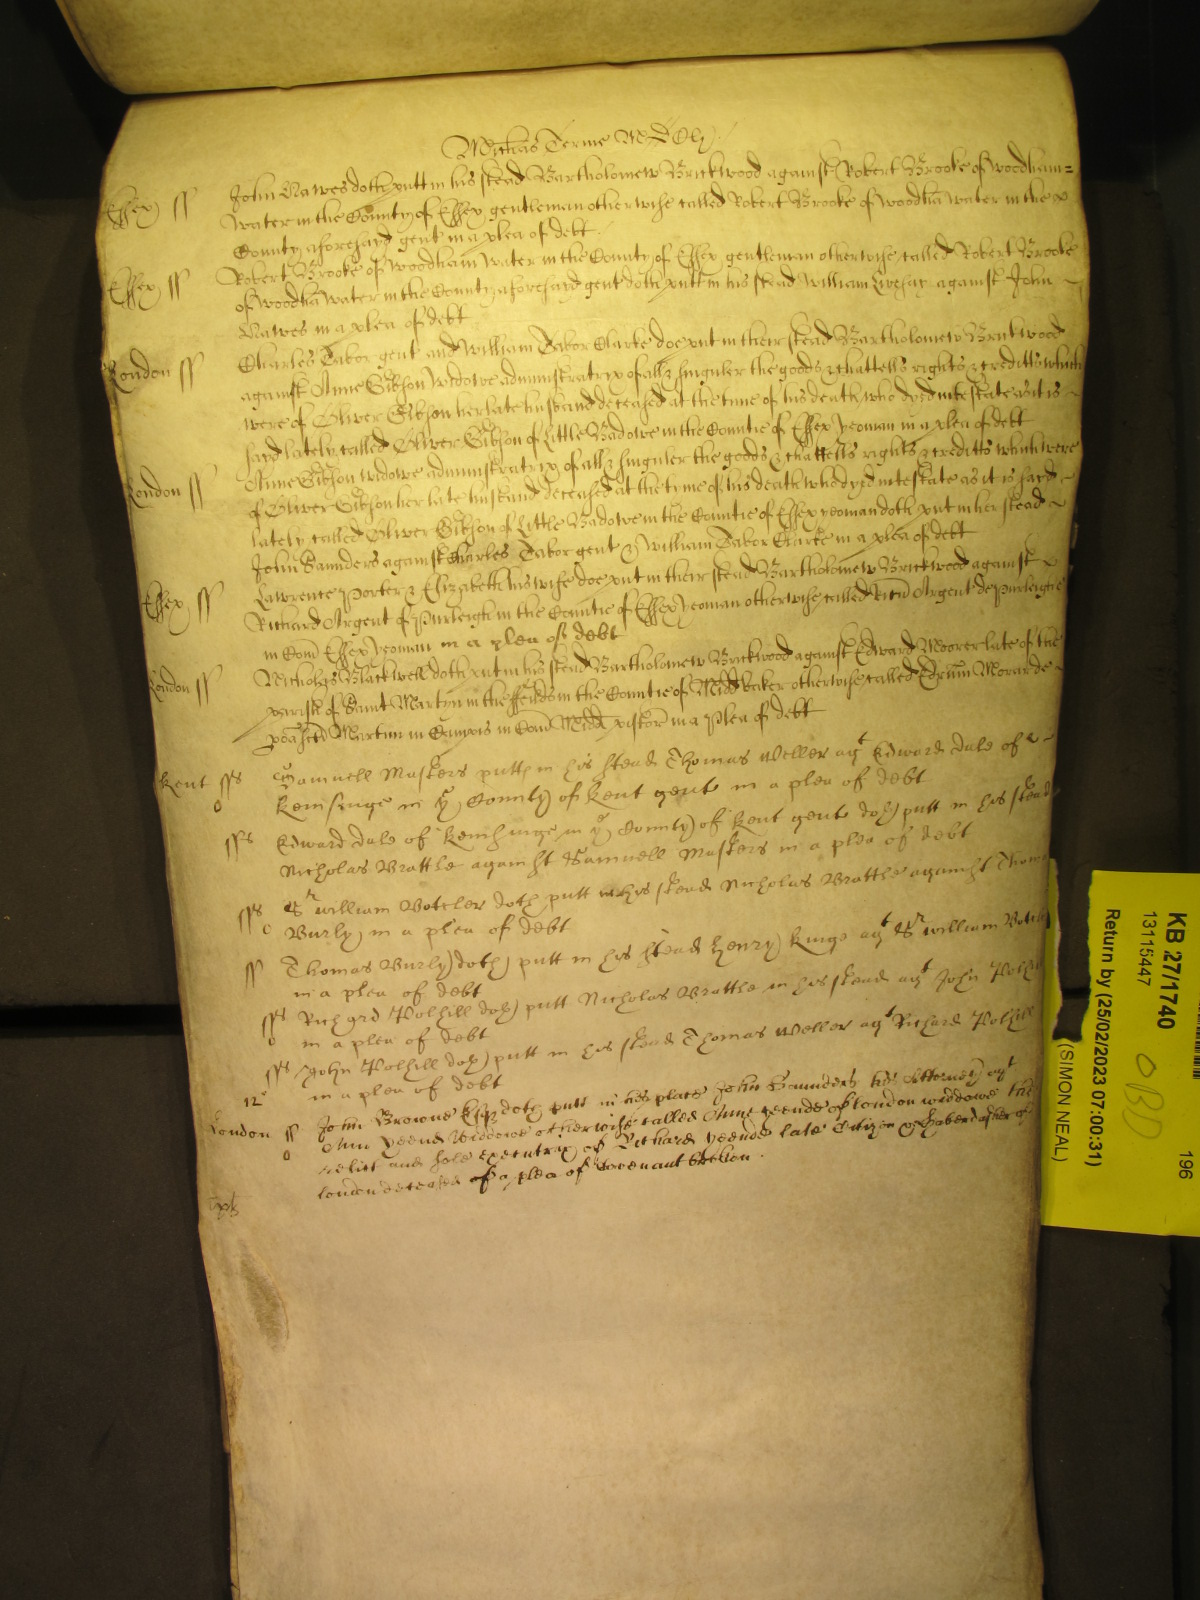 Michas Terme
Essex ss John Nawes doth putt in his stead Bartholomew Brickwood against Robert Brooke of Woodham=
Water in the County of Essex gentleman otherwise called Robert Brooke of Woodhã Water in the
County aforesayd gent in a plea of debt.
Essex ss Robert Brooke of Woodham Water in the County of Essex gentleman otherwise called Robert Brooke
of Woodhã Water in the County aforesayd gent doth putt in his stead William against John
Nawes in a plea of debt
London ss Charles Tabor gent and William Tabor Clarke doe put in their stead Bartholomew Brickwood
against Anne Gibson Widowe administratrix of all & singuler the goods & chattells rights & creditts which
were of Oliver Gibson her late husband deceased at the time of his death who dyed intestate as it is
sayd lately called Oliver Gibson of Little Badowe in the Countie of Essex yeoman in a plea of debt
London ss Anne Gibson widowe administratrix of all & singuler the goods & chattells rights & creditts which were
of Oliver Gibson her late husband deceased at the tyme of his death who dyed intestate as it is sayd
lately called Oliver Gibson of Little Badowe in the Countie of Essex yeoman doth put in her stead
John Saunders against Charles Tabor gent & William Tabor Clarke in a plea of debt
Essex ss Lawrence Porter & Elizabeth his wife doe put in their stead Bartholomew Brickwood against
Richard Argent of Purleigh in the Countie of Essex yeoman otherwise called Ricũ Argent de Purleigh
in Com Essex yeoman in a plea of debt
London ss Nicholas Blackwell doth put in his stead Bartholomew Brickwood against Edward Moorer late of the
parish of Saint Martyn in the ffeilds in the Countie of Midd baker otherwise called Edrum Morar de
Martini in Campis in Com Midd pistor in a Plea of debt
Kent sss Samuell Maskers putt in his stead Thomas Weller agt Edward Dale of
Kemsinge in ye County of Kent gent in a plea of debt
sss Edward Dale of Kemsinge in ye County of Kent gent doth putt in his stead
Nicholas Brattle against Samuell Maskers in a plea of debt
sss Sr William Boteler doth putt in his stead Nicholas Brattle against
Burly in a plea of debt
ss Thomas Burly doth putt in his stead Henry Kinge agt Sr William
in a plea of debt
sss Richard Polhill doth putt Nicholas Brattle in his stead agt John
in a plea of debt
sss John Polhill doth putt in his stead Thomas Weller agt Richard Polhill
in a plea of debt
12
London ss John Browne Esqr doth putt in his place John Saunders his Atterney agt
Ann Yeend Widdowe otherwise called Anne Yeende of London widdowe the
relict and sole executrix of Richard Yeende late Citizen & haberdasher of
London deceased of a plea of Covenant broken.
KB 27/1740
13115447
196
OBD
Return by (25/02/2023 07:00:31)
(SIMON NEAL)